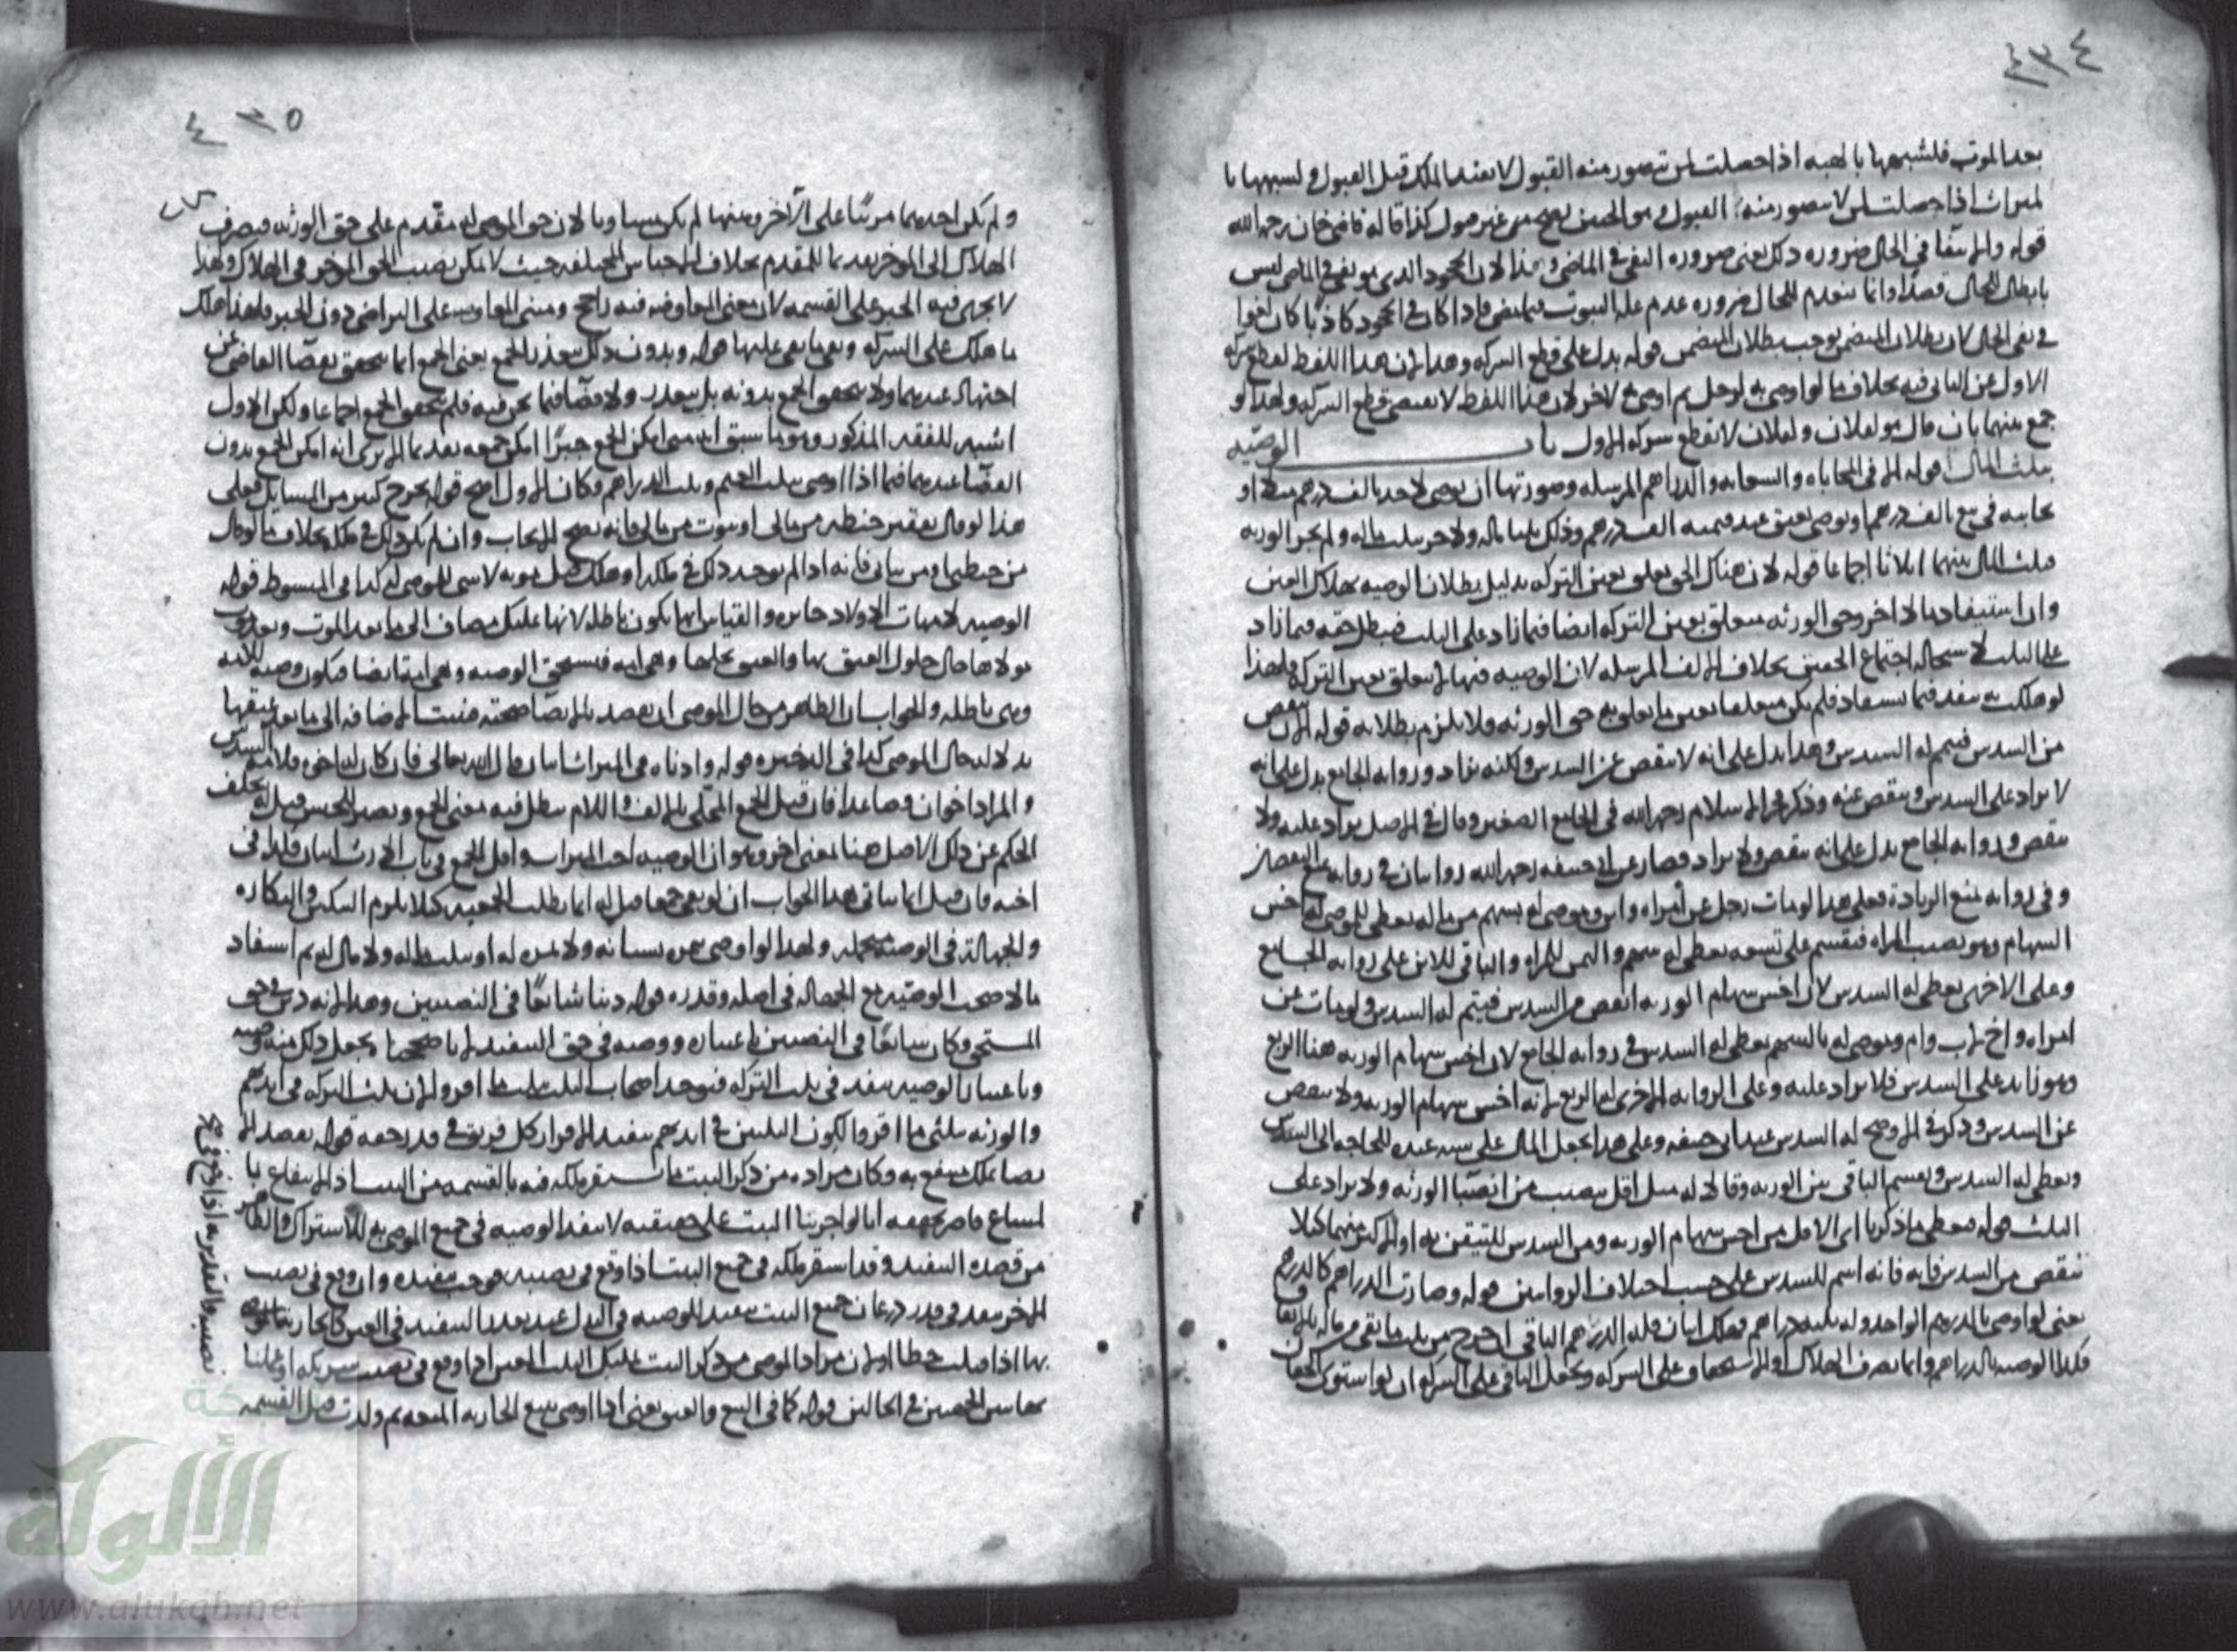 ٤٣٤
بعد الموت فلشبهها بالهبه اذا حصلت لمن تصور منه القبول لا يفيد الملك قبل القبول ولشبهها با
لميراث اذا حصلت لمن لا يتصور منه القبول وهو الجنين يصح من غير قبول كذا قاله قاضي خان رحمه الله
قوله والانتفا في الحال ضروره ذلك يعني ضروره النفي في الماضي وهذا لان الجحود الذي هو نفي في الماضي ليس
بابطال للحال قصدا وانما ينعدم للحال ضروره عدم الثبوت فيما مضى فاذا كان في الجحود كاذبا كان لغوا
في نفي الحال لان بطلان المتضمن يوجب بطلان المتضمن قوله يدل على قطع الشركه وهذا لان هذا اللفظ لقطع شركه
الاول عن الثاني فيه بخلاف ما لو اوصى به لرجل ثم اوصى به لاخر لان هذا اللفظ لا يقتضي قطع الشركه ولهذا لو
جمع بينهما بان قال هو لفلان ولفلان لا يقطع شركه الاول باب الوصيه
بثلث المال قوله الا في المحاباه والسعايه والدراهم المرسله وصورتها ان يوصي لاحد بالف درهم مثلا او
يحابيه في بيع بالف درهم او يوصي بعتق عبد قيمته الف درهم وذلك ثلثا ماله ولاخر بثلث ماله ولم يجز الورثه
فثلث المال بينهما اثلاثا اجماعا قوله لان هناك الحق يتعلق بعين التركه بدليل بطلان الوصيه بهلاك العين
وان استفاد مالا اخر وحق الورثه متعلق بعين التركه ايضا فيما زاد على الثلث فيبطل حقه فيما زاد
على الثلث لاستحاله اجتماع الحقين بخلاف الالف المرسله لان الوصيه فيها لا يتعلق بعين التركه ولهذا
لو هلكت ينفذ فيما يستفاد فلم يكن متعلقا بعين ما تعلق به حق الورثه ولا يلزم بطلانه قوله الا ان ينقص
من السدس فيتم له السدس وهذا يدل على انه لا ينقص عن السدس ولكنه يزاد وروايه الجامع يدل على انه
لا يزاد على السدس وينقص عنه وذكر فخر الاسلام رحمه الله في الجامع الصغير وقال في الاصل يزاد عليه ولا
ينقص وروايه الجامع يدل على انه ينقص ولا يزاد فصار عن ابي حنيفه رحمه الله روايتان في روايه منع النقصان
وفي روايه منع الزيادة فعلى هذا لو مات رجل عن امراه وابن واوصى له بسهم من ماله يعطى للموصى له اخس
السهام وهو نصيب المراه فيقسم على تسعه يعطى له سهم والثمن للمراه والباقي للابن على روايه الجامع
وعلى الاخرى يعطى له السدس لان اخس سهام الورثه انقص من السدس فيتم له السدس ولو مات عن
امراه واخ لاب وام واوصى له بالسهم يعطى له السدس في روايه الجامع لان اخس سهام الورثه هنا الربع
وهو زايد على السدس فلا يزاد عليه وعلى الروايه الاخرى له الربع لانه اخس سهام الورثه ولا ينقص
عن السدس وذكر في الاوضح له السدس عند ابي حنيفه وعلى هذا يجعل المال على سته عنده للحاجه الى السدس
ويعطى له السدس ويقسم الباقي بين الورثه وقالا له مثل اقل نصيب من انصبا الورثه ولا يزاد على
الثلث قوله فيعطى ما ذكرنا اي الاقل من اخس سهام الورثه ومن السدس للتيقن به او الاكثر منهما كيلا
ينقص من السدس فانه اسم للسدس على حسب اختلاف الروايتين قوله وصارت الدراهم كالدرهم
يعني لو اوصى بالدرهم الواحد وله ثلثه دراهم فهلك اثنان فله الدرهم الباقي ان خرج من ثلث ما بقي من ماله بالاتفاق
فكذا الوصيه بالدراهم وانما يصرف الهلاك او الاستحقاق على الشركه ويجعل الباقي على الشركه ان لو استوى الحقان
٤٣٥
ولم يكن احدهما مرتبا على الآخر وههنا لم يكن مساويا لان حق الموصى له مقدم على حق الورثه فيصرف
الهلاك الى المؤخر تقديما للمقدم بخلاف الاجناس المختلفه حيث لا يمكن نصيب الحق المؤخر في الهلاك ولهذا
لا يجري فيه الجبر على القسمه لان معنى المعاوضه فيه راجح ومبنى المعاوضه على التراضي دون الجبر فلهذا هلك
ما هلك على الشركه وبقي ما بقي عليها قوله وبدون ذلك يتعذر الجمع يعني الجمع انما يتحقق بقضا القاضي عن
اجتهاد عندهما ولا يتحقق الجمع بدونه بل يتعذر ولا قضا فيما نحن فيه فلم يتحقق الجمع اجماعا ولكن الاول
اشبه للفقه المذكور وهو ما سبق انه متى امكن الجمع جبرا امكن جمعه تقديما الا يرى انه امكن الجمع بدون
القضا عندهما فيما اذا اوصى بثلث الغنم وثلث الدراهم فكان الاول اصح قوله يخرج كثير من المسايل فعلى
هذا لو قال بقفيز حنطه من مالي او بثوب من مالي فانه يصح الايجاب وان لم يكن ذلك في ملكه بخلاف ما لو قال
من حنطتي او من ثيابي فانه اذا لم يوجد ذلك في ملكه او هلك قبل موته لا شي للموصى له كذا في المبسوط قوله
الوصيه لامهات الاولاد جايزه والقياس انها يكون باطله لانها تمليك مضاف الى ما بعد الموت وبعد موت
مولاها حال حلول العتق بها والعتق يحلها وهي امه فيستحق الوصيه وهي امه ايضا فيكون وصيه للامه
وهي باطله والجواب ان الظاهر من حال الموصي ان يقصد بالايصا صحته فيثبت الاضافه الى ما بعد عتقها
بدلاله حال الموصي كذا في الذخيره قوله وادناه في الميراث اثنان قال الله تعالى فان كان له اخوه فلامه السدس
والمراد اخوان فصاعدا فان قيل الجمع المحلى بالالف واللام يبطل فيه معنى الجمع ويصير للجنس قيل له تخلف
الحكم عن ذلك الاصل هنا لمعنى اخر وهو ان الوصيه اخت الميراث واقل الجمع في باب الارث اثنان فكذا في
اخته فان قيل انما يتاتى هذا الجواب ان لو بقي جمعا قيل له انما بطلت الجمعيه كيلا يلزم التنكير والنكاره
والجهاله في الوصيه محتمله ولهذا لو اوصى بثمره بستانه ولا ثمره له او بثلث ماله ولا مال له ثم استفاد
مالا صحت الوصيه مع الجهاله في اصله وقدره قوله دينا شايعا في النصيبين وهذا لانه دين في حق
المستحق وكان شايعا في النصيبين باعتباره ووصيه في حق التنفيذ لما صححنا بجعل ذلك منه وصيه
وباعتبار الوصيه ينفذ في ثلث التركه فيوخذ اصحاب الثلث بثلث ما اقروا لان ثلث التركه في ايديهم
والورثه بثلثي ما اقروا لكون الثلثين في ايديهم تنفيذا لاقرار كل فريق في قدر حقه قوله يقصد الا
يصا بملك ينتفع به وكان مراده من ذكر البيت ما يستقر ملكه فيه بالقسمه من البيت اذ الانتفاع با
لمشاع قاصر قوله اما لو اجرينا البيت على حقيقته لا ينفذ الوصيه في جميع الموصى به للاشتراك والظاهر
من قصده التنفيذ وقد استقر ملكه في جميع البيت اذا وقع في نصيبه فوجب تنفيذه وان وقع في نصيب
الاخر ينفذ في قدر ذرعان جميع البيت تنفيذا للوصيه في البدل عند تعذر التنفيذ في العين كالجاريه الموصى
بها اذا قتلت خطا او لان مراد الموصي من ذكر البيت تمليك البيت المعين اذا وقع في نصيب شريكه او عملنا
بهاتين الجهتين في الحالين قوله كما في البيع والعتق يعني اذا اوصى ببيع الجاريه المعينه ثم ولدت قبل القسمه
نصيبه والتقدير به اذا وقع في
شبكة
الألوكة
www.alukah.net